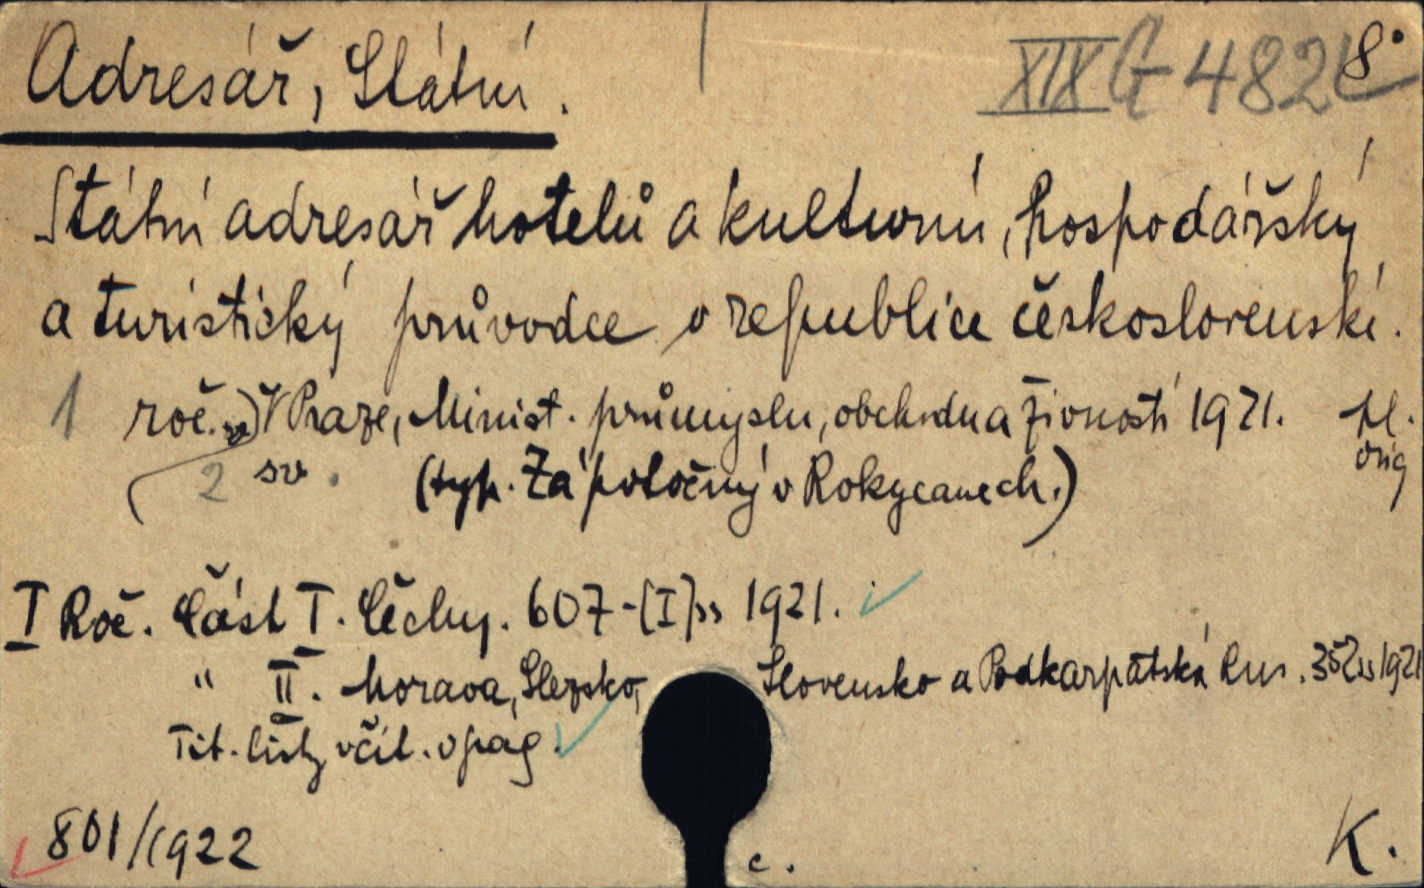 Adresář, Státní.
XIX G 482 8°
Státní adresář hotelů a kulturní, hospodářský
a turistický průvodce v republice československé.
1 roč. V Praze, Minist. průmyslu, obchodu a živností 1921. Pl.
orig
2 sv. (typ. Zápotočný v Rokycanech.)
I Roč. Část I. Čechy. 607-[I] ss 1921.
" II. Morava, Slezsko, Slovensko a Podkarpatská Rus. 352 ss 1921
Tit. listy včít. v pag.
801/1922
c.
K.